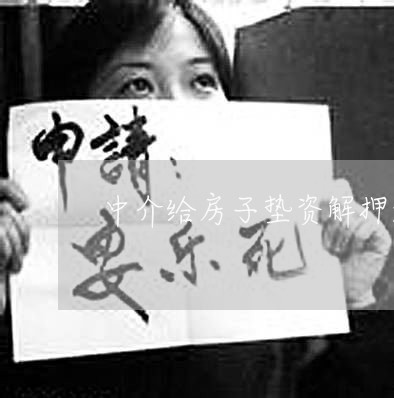 申請：
中介给房子垫资解押
安乐死